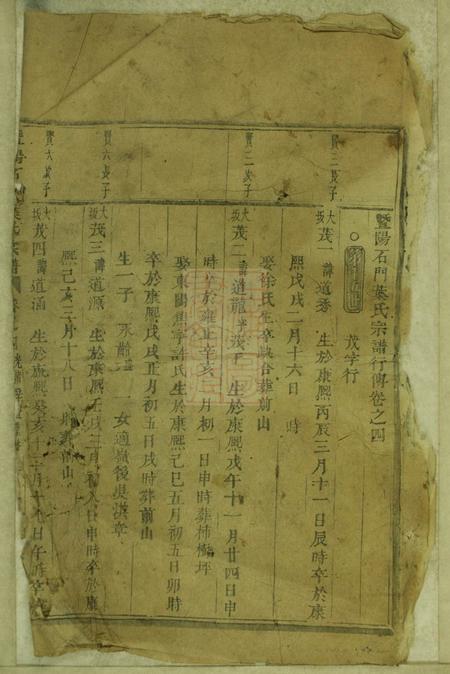 暨陽石門葉氏宗譜行傳卷之四
茂字行
賢三長子
大坂茂一諱道秀 生於康熙丙辰三月十一日辰時卒於康
熙戊戌二月十六日 時
娶徐氏生卒缺合葬前山
賢二次子
大坂茂二諱道龍 生於康熙戊午十一月廿四日申
時卒於雍正辛亥 月初一日申時葬柿 坪
娶東陽焦 許氏生於康熙己巳五月初五日卯時
卒於康熙戊戌正月初五日戌時葬前山
生一子 一女適嶺後吳 章
賢六長子
大坂茂三諱道源 生於康熙壬戌三月初八日申時卒於康
熙己亥三月十八日 前山
賢六次子
大坂茂四諱道涵 生於康熙癸亥十二月十 日午時卒
暨陽石門葉氏宗譜 卷之四